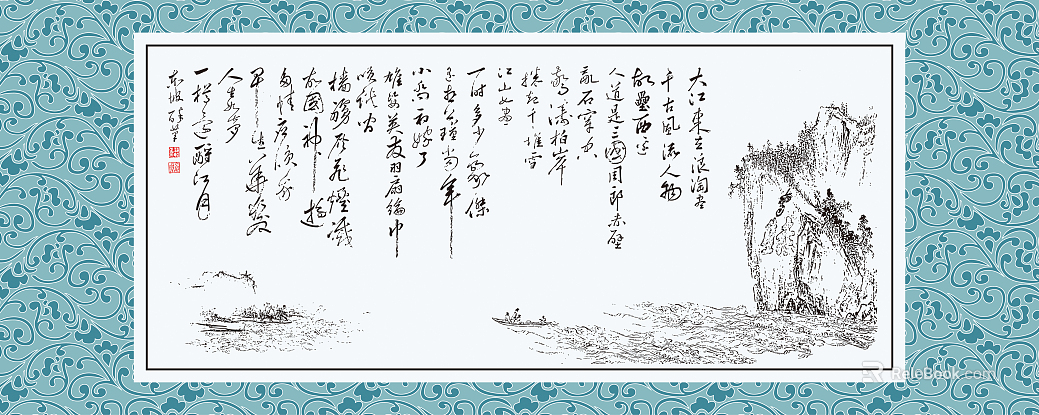 大江東去浪淘盡
千古風流人物
故壘西邊
人道是三國周郎赤壁
亂石穿空
驚濤拍岸
捲起千堆雪
江山如畫
一時多少豪傑
遙想公瑾當年
小喬初嫁了
雄姿英發羽扇綸巾
談笑間
檣櫓灰飛煙滅
故國神遊
多情應笑我
早生華髮
人生如夢
一樽還酹江月
東坡醉筆
ReleBook.com